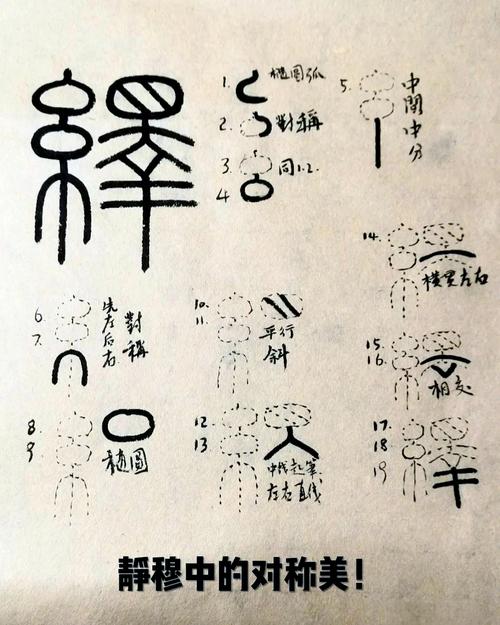 繹
1. 橢圓弧
2. 對稱
3. 同1.2.
4
5. 中間中分
6.
7. 先左后右 對稱
8.
9 橢圓
10.
11. 平行斜
12.
13 中线起筆
左右直线
14. 橫里左右
15.
16. 相交
17.
18.
19
靜穆中的对称美！